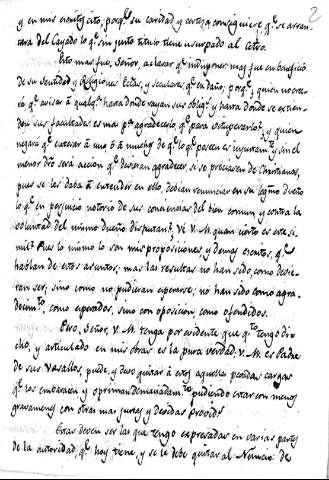 2
y en mis escritos cito, porq.e su caridad y certeza consiguiese q.e se arran-
cara del Cayado lo q.e sin justo titulo tiene usurpado al Cetro.
Esto mas fue, Señor, aclarar q.e indisponer; mas fue en beneficio
de su Santidad, y Religiones Ecles.s y seculares, q.e en daño; porq.e quien no cree
rá q.e aviso á qualq.a hasta donde vayan sus oblig.s y hasta donde se extien-
den sus facultades. es mas p.a agradecerlo, q.e para vituperarlo? y quien
negará q.e enterar á uno ó á mucho de q.e lo q.e poseen es injustam.te y sin el
menor dro será accion q.e devieran agradecer si se preciasen de Christianos,
pues se les daba á entender en ello, debian renunciar en su legmo dueño
lo q.e en perjuicio notorio de sus conciencias del bien comun y contra la
voluntad del mismo dueño disputan? Vé V. M. quan cierto es este si-
mil? Pues lo mismo lo son mis proposiciones, y demas escritos, q.e
hablan de estos asuntos; mas las resultas no han sido, como desie-
ran ser, sino como no pudieran esperarse; no han sido como agra-
decim.to, como esperados, sino con oposicion, como ofendidos.
Pero, Señor, V. M. tenga por evidente que q.to tengo di-
cho, y articulado en mis obras es la pura verdad. V. M. es Padre
de sus Vasallos, puede, y deve quitar á estos aquellas pesadas cargas
q.e los embarazen y opriman demasiadam.te pudiendo estar con menos
gravamenes con otras mas justas y devidas Provid.s
Estas deven ser las que tengo expresadas en varias partes
de la autoridad, q.e hoy tiene, y se le debe quitar al Nuncio: de